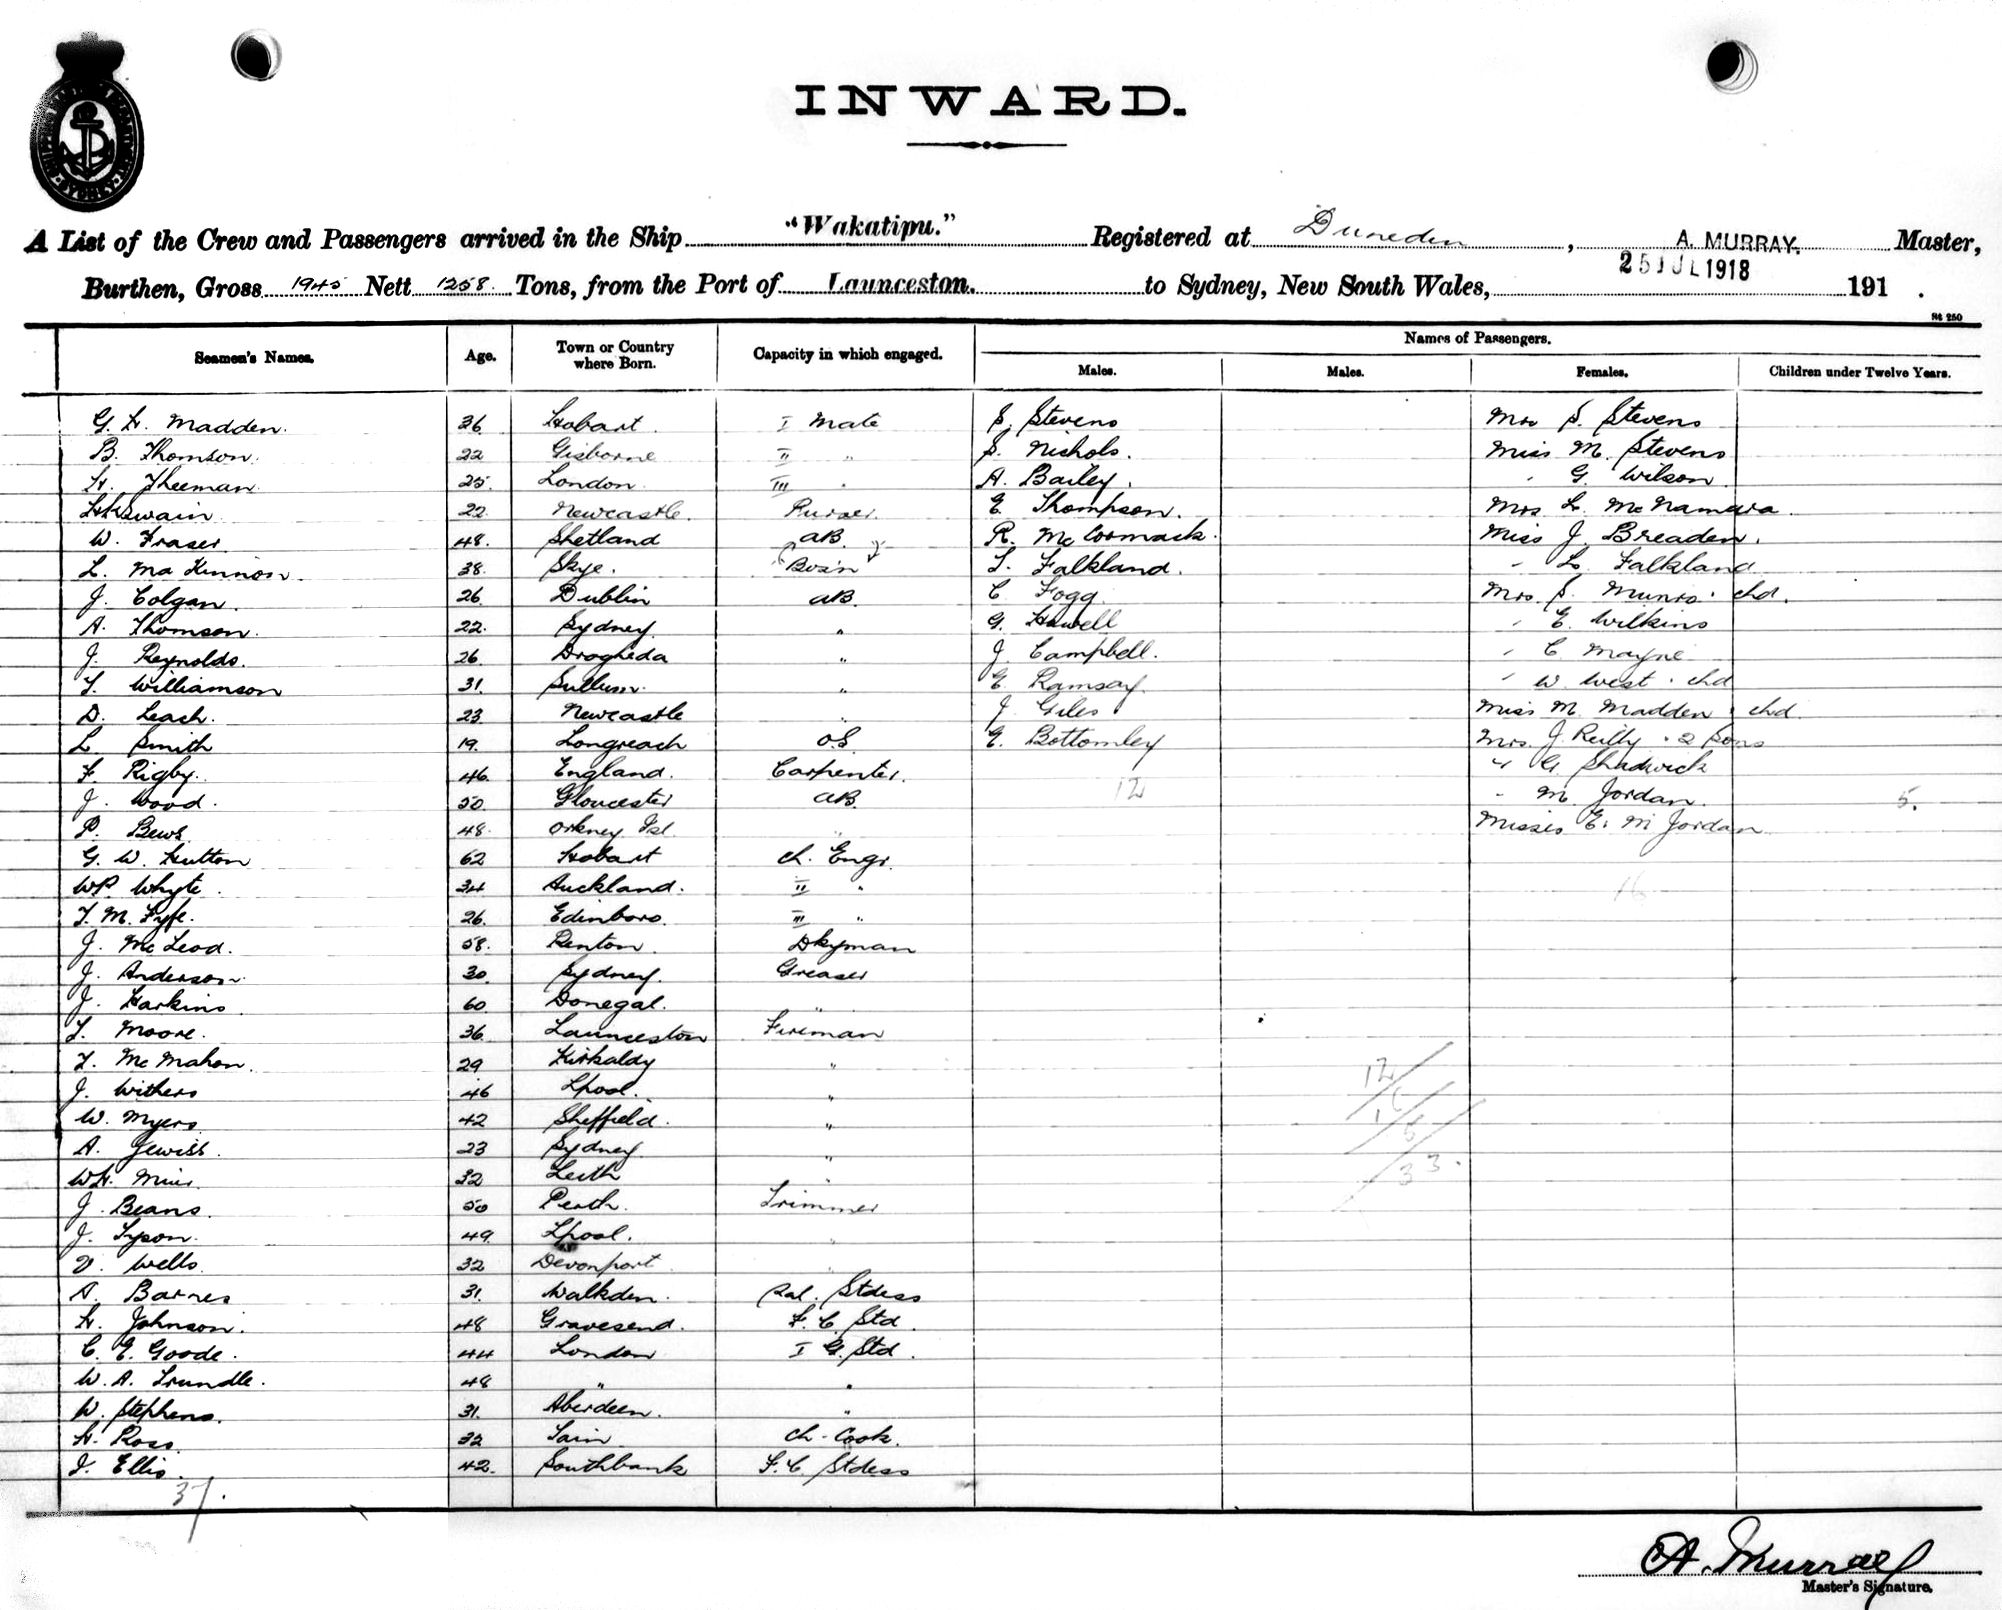 INWARD.
A List of the Crew and Passengers arrived in the Ship "Wakatipu." Registered at Dunedin, A. MURRAY. Master,
25 JUL 1918
Burthen, Gross 1945 Nett 1258 Tons, from the Port of Launceston. to Sydney, New South Wales, 191 .
St 250
Seamen's Names. Age. Town or Country where Born. Capacity in which engaged. Names of Passengers.
Males. Males. Females. Children under Twelve Years.
G. H. Madden. 36 Hobart. I Mate S. Stevens Mrs S. Stevens
B. Thomson. 22 Gisborne II " S. Nichols. Miss M. Stevens
H. Theeman 25. London. III " A. Bailey. " G. Wilson.
Swain 22 Newcastle. Purser. E. Thompson. Mrs L. McNamara
W. Fraser 48. Shetland AB. R. McCormack. Miss J. Breaden.
L. MacKinnon. 38. Skye. Bosin T. Falkland. " L. Falkland
J. Colgan. 26 Dublin AB. C. Fogg. Mrs. S. Munro. chd.
A. Thomson. 22. Sydney. " G. Howell " E. Wilkins
J. Reynolds. 26 Drogheda " J. Campbell. " C. Mayne
T. Williamson 31. Sullum. " E. Ramsay. " W. West. chd
D. Leach. 23 Newcastle " J. Giles Miss M. Madden chd.
L. Smith 19. Longreach O.S. E. Bottomley Mrs. J. Reilly. 2 sons
F. Rigby. 46. England. Carpenter. " G. Shadwick
J. Wood. 50 Gloucester AB. 12 " M. Jordan. 5.
P. Bews 48. Orkney Isl. " Misses E. M. Jordan
G. W. Hutton 62 Hobart Ch. Engr.
W.P. Whyte. 34 Auckland. II " 16
T. M. Fyfe. 26. Edinboro. III "
J. McLeod. 58. Renton. Dkyman
J. Anderson. 30. Sydney. Greaser
J. Harkins 60 Donegal. "
T. Moore. 36 Launceston Fireman
T. McMahon. 29 Kirkaldy " 12
J. Withers 46 Lpool. " 16
W. Myers 42 Sheffield. " 5
A. Jewiss. 23 Sydney. " 33.
W.H. Muir. 32 Leith "
J. Beans. 50 Perth. Trimmer
J. Tyson. 49. Lpool. "
V. Wells. 32 Devonport. "
A. Barnes 31. Walkden. Sal. Stdess
H. Johnson. 48 Gravesend. F. C. Std.
C. E. Goode. 44 London I G. Std.
W. A. Trundle. 48 " "
W. Stephens. 31. Aberdeen. "
H. Ross. 32 Tain Ch. Cook.
I. Ellis. 42. Southbank F. C. Stdess
37.
A. Murray
Master's Signature.